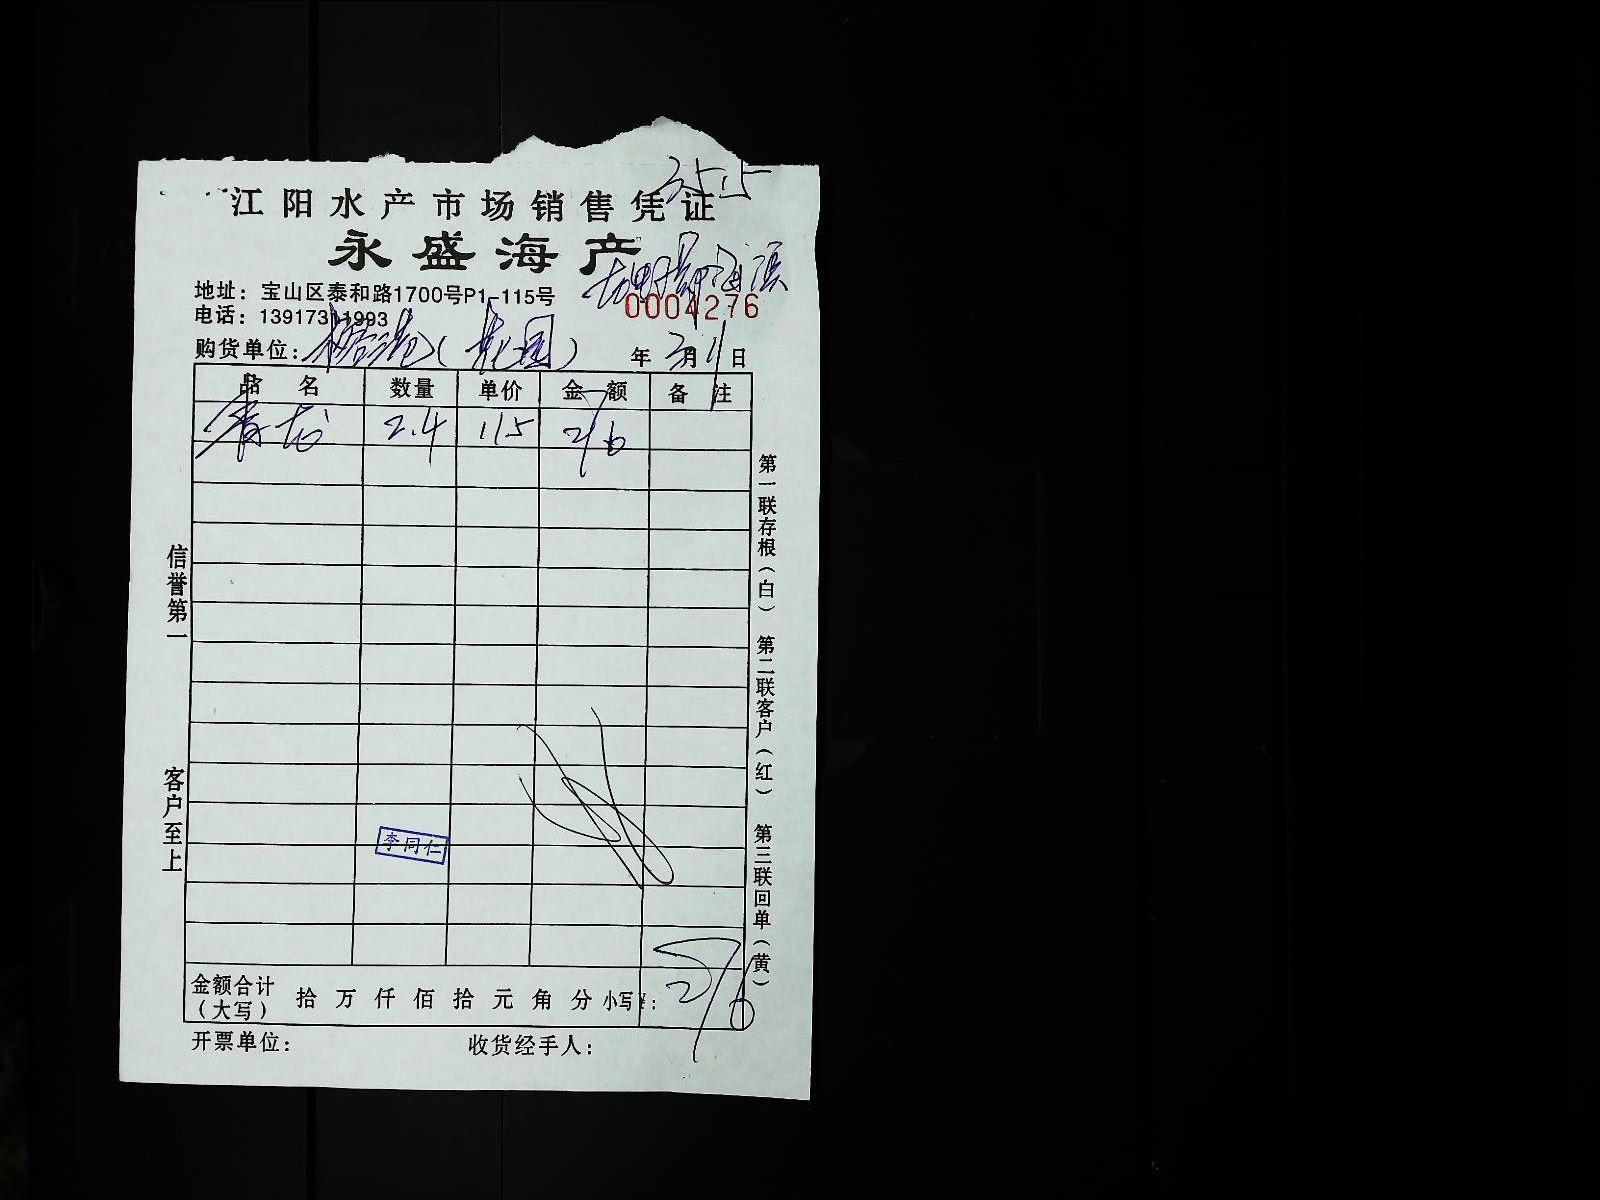 江阳水产市场销售凭证
永盛海产
地址：宝山区泰和路1700号P1-115号
0004276
电话：13917311993
购货单位： 年 3月11日
品名 数量 单价 金额 备注
青龙 2.4 115 276
李同仁
金额合计（大写） 拾 万 仟 佰 拾 元 角 分 小写¥： 276
开票单位： 收货经手人：
信誉第一 客户至上
第一联存根（白） 第二联客户（红） 第三联回单（黄）